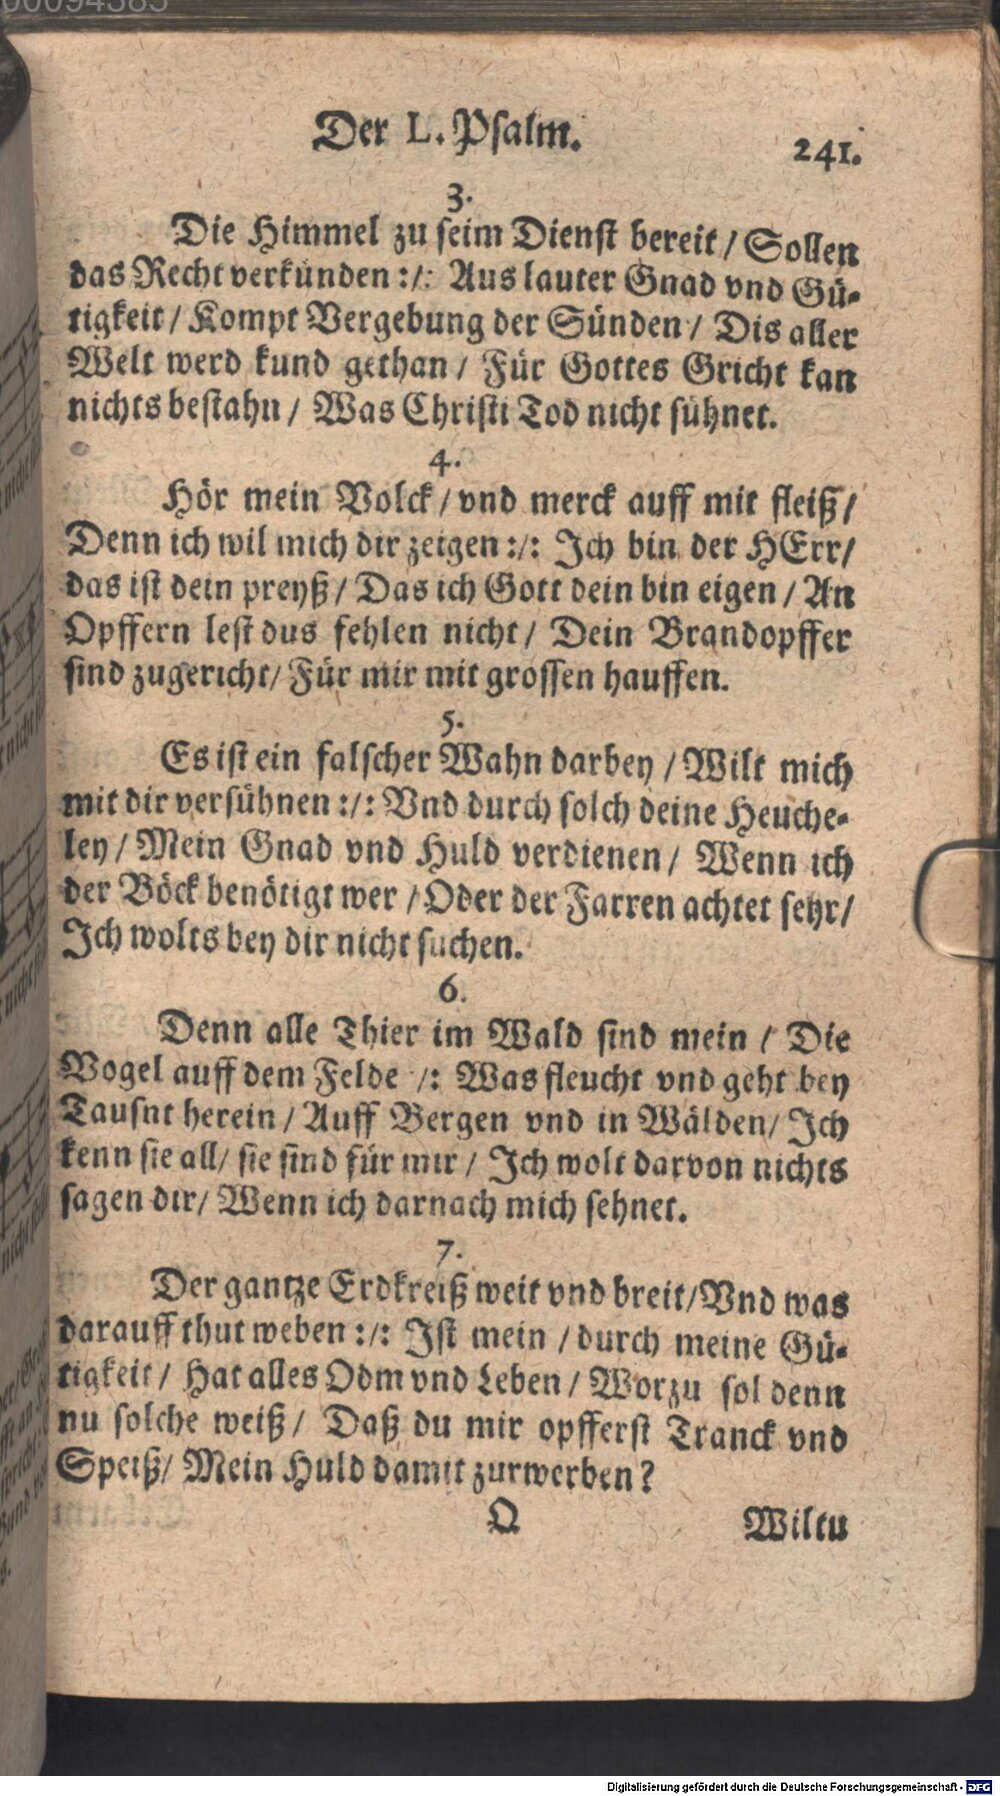 00094385
Der L. Psalm.
241.
3.
Die Himmel zu seim Dienst bereit / Sollen
das Recht verkunden :/: Aus lauter Gnad vnd Gü-
tigkeit / Kompt Vergebung der Sünden / Dis aller
Welt werd kund gethan / Für Gottes Gricht kan
nichts bestahn / Was Christi Tod nicht sühnet.
4.
Hör mein Volck / vnd merck auff mit fleiß /
Denn ich wil mich dir zeigen :/: Ich bin der HErr /
das ist dein preyß / Das ich Gott dein bin eigen / An
Opffern lest dus fehlen nicht / Dein Brandopffer
sind zugericht / Für mir mit grossen hauffen.
5.
Es ist ein falscher Wahn darbey / Wilt mich
mit dir versühnen :/: Vnd durch solch deine Heuche-
ley / Mein Gnad vnd Huld verdienen / Wenn ich
der Böck benötigt wer / Oder der Farren achtet sehr /
Ich wolts bey dir nicht suchen.
6.
Denn alle Thier im Wald sind mein / Die
Vogel auff dem Felde /: Was fleucht vnd geht bey
Tausnt herein / Auff Bergen vnd in Wälden / Ich
kenn sie all / sie sind für mir / Ich wolt darvon nichts
sagen dir / Wenn ich darnach mich sehnet.
7.
Der gantze Erdkreiß weit vnd breit / Vnd was
darauff thut weben :/: Ist mein / durch meine Gü-
tigkeit / Hat alles Odm vnd Leben / Worzu sol denn
nu solche weiß / Daß du mir opfferst Tranck vnd
Speiß / Mein Huld damit zurwerben?
Q
Wiltu
Digitalisierung gefördert durch die Deutsche Forschungsgemeinschaft - DFG